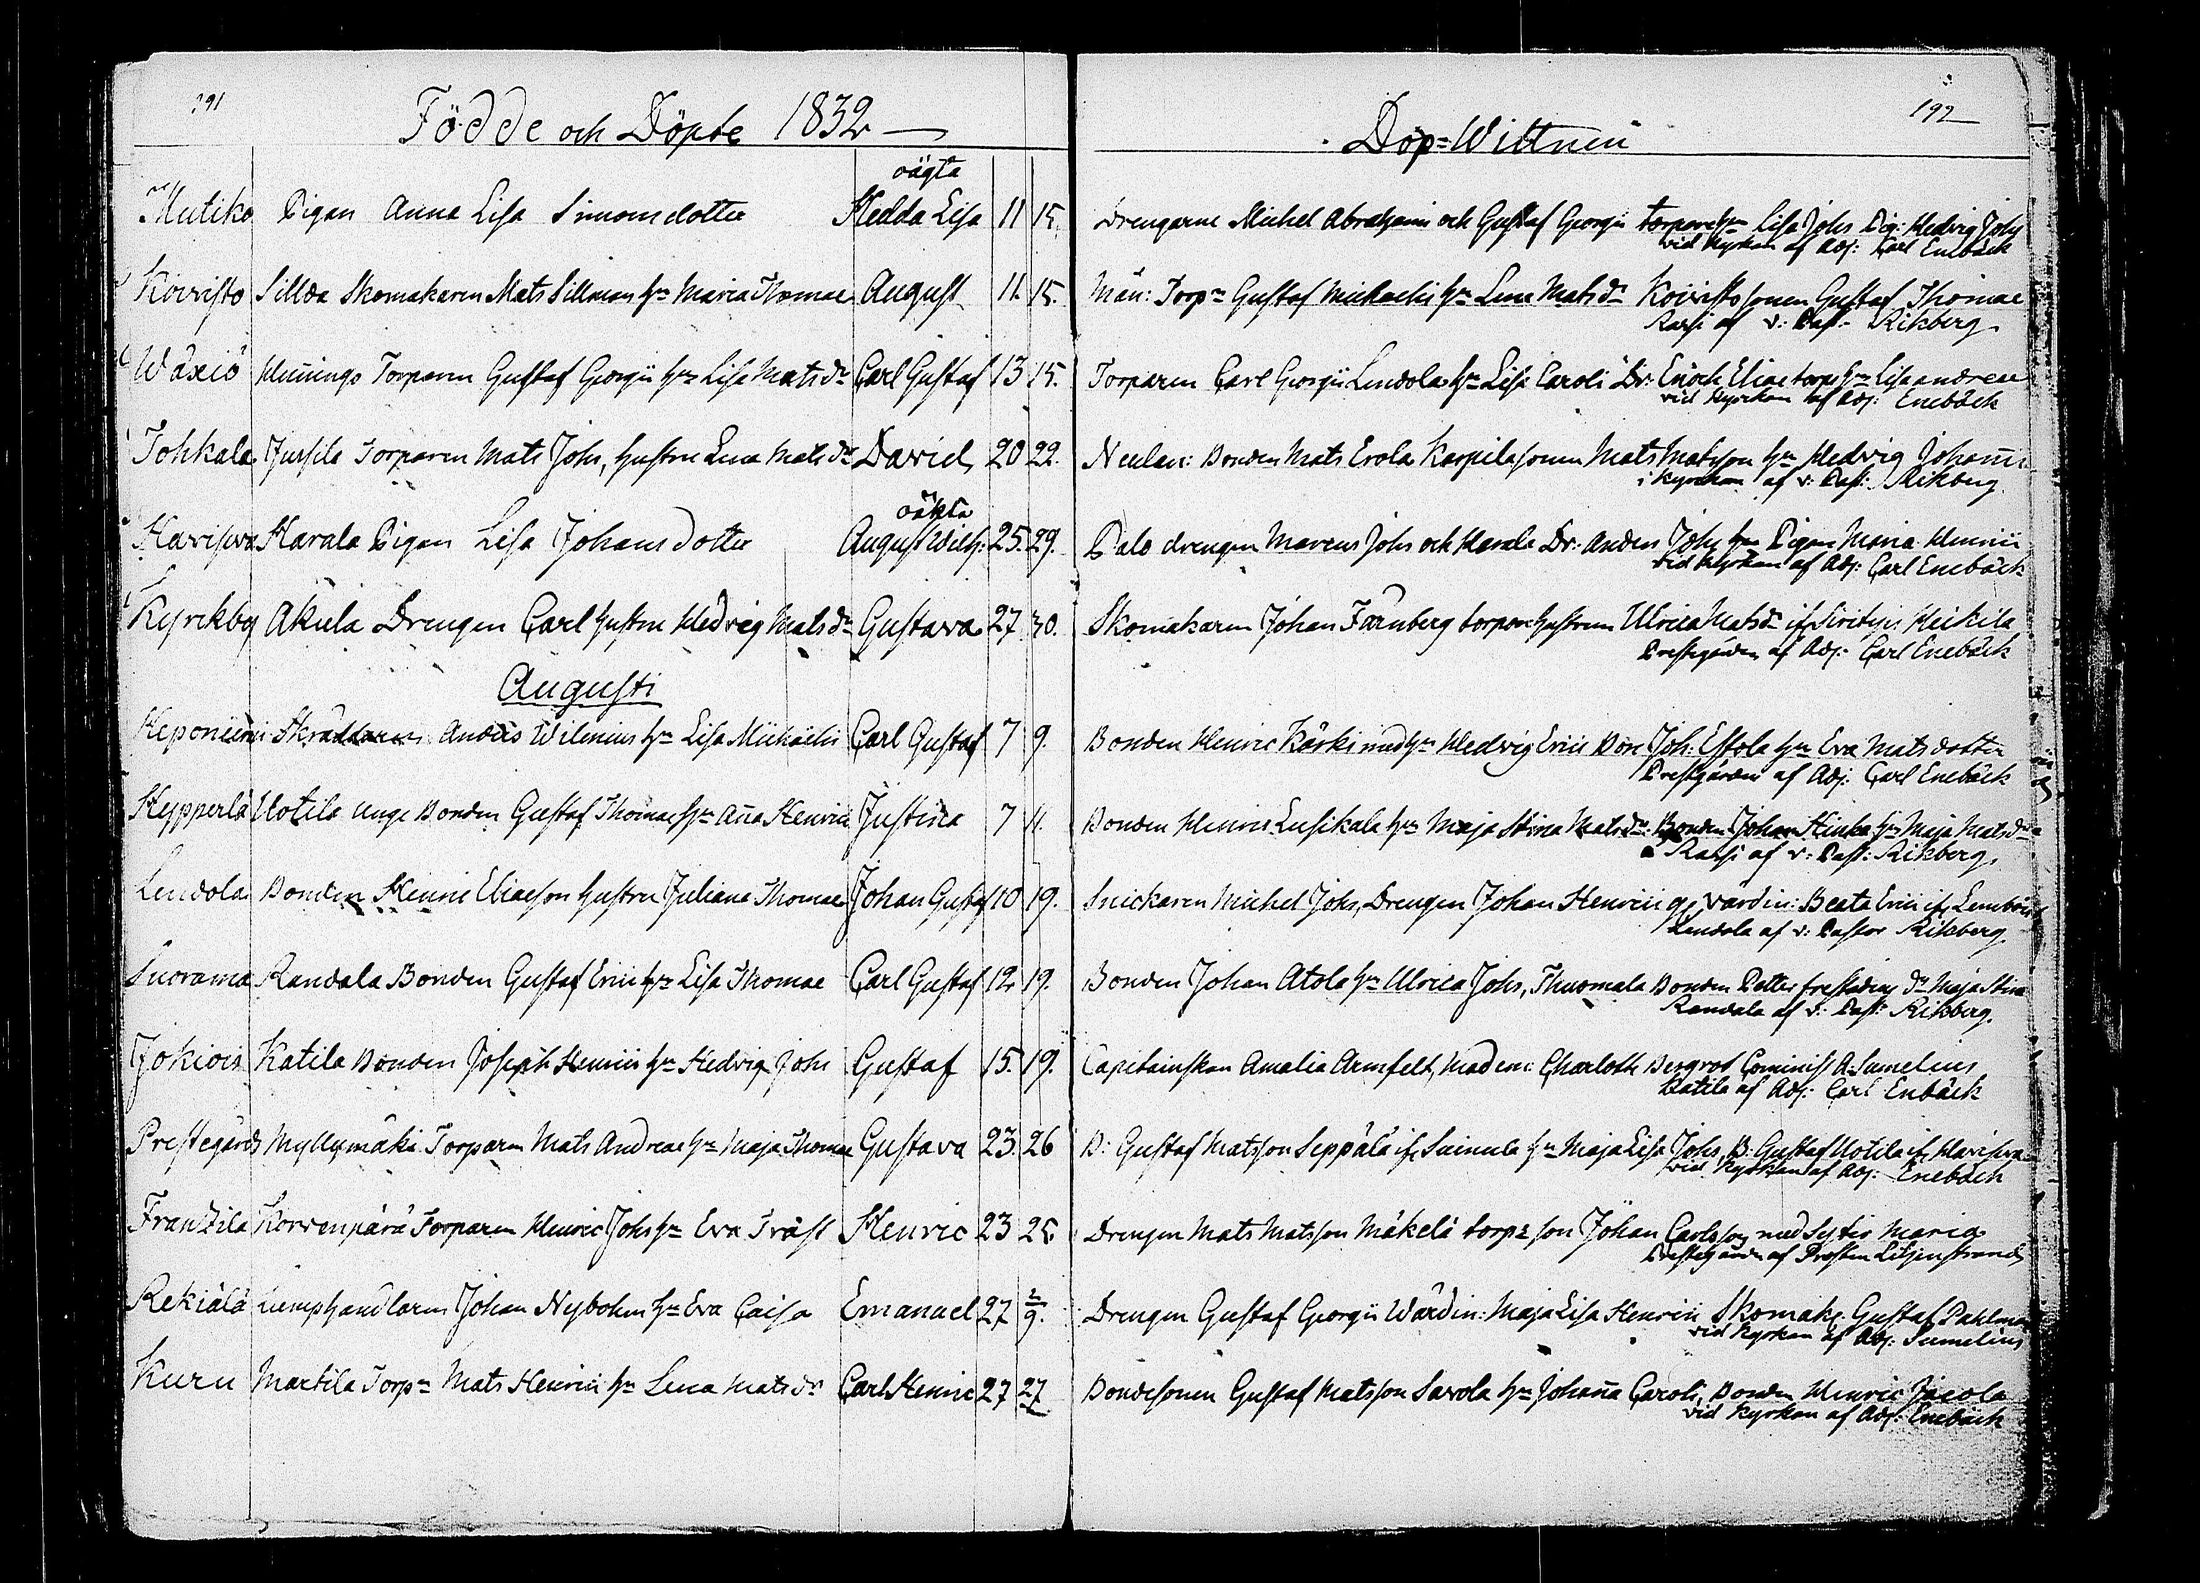 191
Födde och Döpte 1832
oägta
Mutiko Pigan Anna Lisa Simonsdotter Hedda Lisa 11 15.
Koivisto Sillda Skomakaren Mats Sillman hu Maria Thomae August 11. 15.
Wäxiö Hennings Torparen Gustaf Georgii hu Lisa Mats dr Carl Gustaf 13 15.
Tohkala Jussila Torparen Mats Johs, hustru Lena Mats dr David 20 22.
oäkta
Harviala Pigan Lisa Johansdotter August Wilh: 25. 29.
Kyrckby Akula Drengen Carl hustru Hedvig Mats dr Gustava 27. 30.
Augusti
Heponiemi Skräddaren Anders Wilenius hu Lisa Michaelis Carl Gustaf 7 9.
Hypperlä Uotila unge Bonden Gustaf Thomae hu Aña Henrici Justina 7 11.
Lendola Bonden Henric Eliaeson hustru Juliana Thomae Johan Gustaf 10 19.
Suorama Randala Bonden Gustaf Erici hu Lisa Thomae Carl Gustaf 12 19.
Jokiois Katila Bonden Joseph Henrici hu Hedvig Johs Gustaf 15. 19.
Prestegårds Myllymäki Torparen Mats Andreae hu Maja Thomae Gustava 23. 26
Franzila Korvenpärä Torparen Henric Johs hu Eva Träst Henric 23 25.
Rekiälä Lumphandlaren Johan Nybohm hu Eva Caisa Emanuel 27 2/9.
Kuru Martila Torp: Mats Henrici hu Lena Mats dr Carl Henric 27 27
192
Döp=Wittnen
Drengarne Michel Abrahami och Gustaf Georgii torpare hu Lisa Johs Pig: Hedvig Johs
vid Kyrkan af Adj: Carl Enebäck
Män: Torp: Gustaf Michaelis hu Lena Mats dr Koivisto sonen Gustaf Thomae
Rassi af v: Past: Rikberg
Torparen Carl Georgii Lendola hu Lisa Caroli Dr: Enoch Eliae torp: hu Lisa Andreae
vid Kyrkan af Adj: Enebäck
Neulan: Bonden Mats Erola Karpila sonen Mats Matsson hu Hedvig Johanis
i Kyrckan af v: Past: Rikberg
Palo drengen Marcus Johs och Harala Dr: Anders Johs Pigan Maria Henrici
vid Kyrkan af Adj: Carl Enebäck
Skomakaren Johan Färnberg torpare hustrun Ulrica Mats dr Heikila
Prestegården af Adj: Carl Enebäck
Bonden Henric Käski med hu Hedvig Erici Bon: Joh: Essola hu Eva Matsdotter
Prestgården af Adj: Carl Enebäck
Bonden Henric Lusikala hu Maja Stina Mats dr: Bonden Johan Hinka hu Maja Mats dr
Rassi af v: Past: Rikberg.
Snickaren Michel Johs, Drengen Johan Henrici värdin: Beata Erici
Lendola af v: Pastor Rikberg
Bonden Johan Atola hu Ulrica Johs, Thuomala Bonden Petter dr Maja Stina
Randala af v: Past: Rikberg.
Capitainskan Amalia Armfelt, Madem: Charlotte Bergrot Cominist: A. Sumelius
Katila af Adj: Carl Enbäck
B: Gustaf Matsson Seppälä if Suinula hu Maja Lisa Johs, B: Gustaf Uotila if
vid Kyrkan af Adj: Enebäck
Drengen Mats Matsson Mäkelä torp: son Johan Carlsson med Syster Maria
Prestegården af Prosten Liljenstrand
Drengen Gustaf Georgii Wärdin: Maja Lisa Henrici Skomak: Gustaf Pahlman
vid Kyrkan af Adj: Sumelius
Bondesonen Gustaf Matsson Savola hu Johaña Caroli, Bonden Henric Jacola
vid Kyrkan af Adj: Enebäck